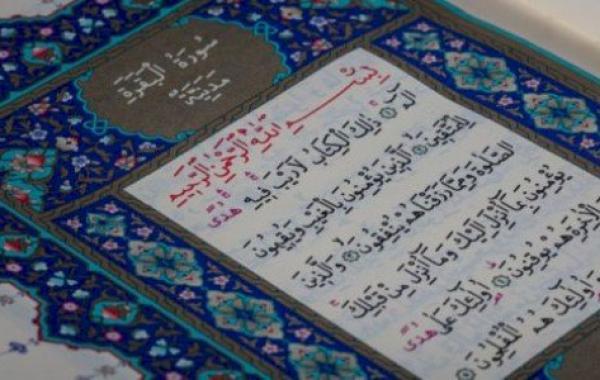 سُورَةُ الْبَقَرَةِ
مَدَنِيَّةٌ
بِسْمِ اللَّهِ الرَّحْمَٰنِ الرَّحِيمِ
الٓمٓ ۝ ذَٰلِكَ الْكِتَابُ لَا رَيْبَ فِيهِ هُدًى
لِلْمُتَّقِينَ ۝ الَّذِينَ يُؤْمِنُونَ بِالْغَيْبِ وَيُقِيمُونَ
الصَّلَاةَ وَمِمَّا رَزَقْنَاهُمْ يُنْفِقُونَ ۝ وَالَّذِينَ
يُؤْمِنُونَ بِمَا أُنْزِلَ إِلَيْكَ وَمَا أُنْزِلَ مِنْ قَبْلِكَ
وَبِالْآخِرَةِ هُمْ يُوقِنُونَ ۝ أُولَٰئِكَ عَلَىٰ هُدًى
وَأُولَٰئِكَ هُمُ الْمُفْلِحُونَ